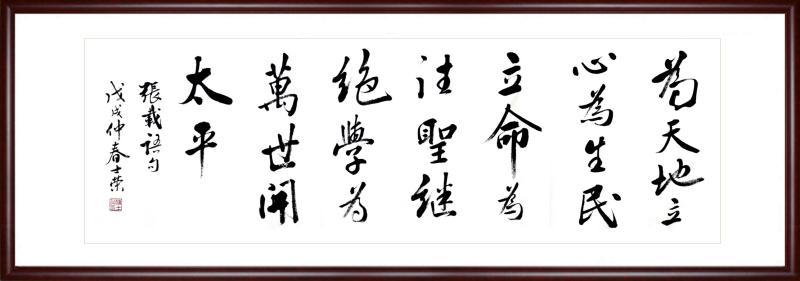 為天地立
心為生民
立命為
往聖継
絶學為
萬世開
太平
張載語句
戊戌仲春士荣